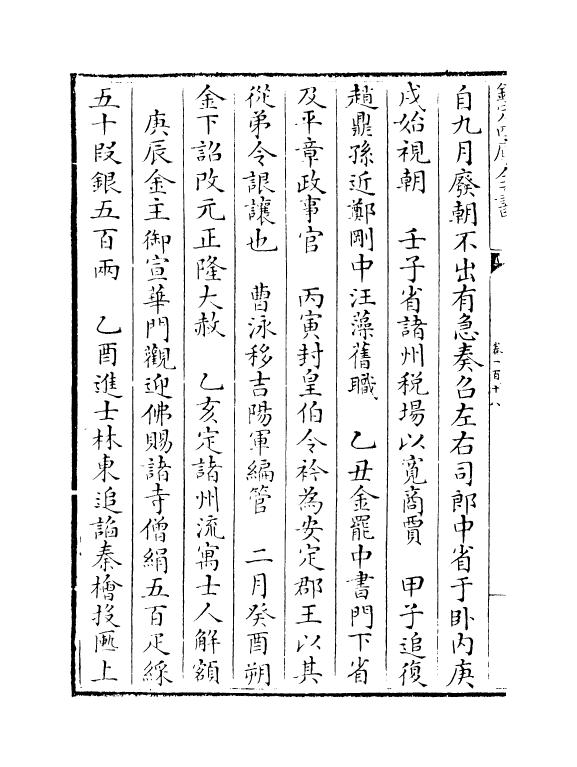 欽定四庫全書
卷一百十八
自九月廢朝不出有急奏召左右司郎中省于卧内庚
戌始視朝　壬子省諸州税場以寛商賈　甲子追復
趙鼎孫近鄭剛中汪藻舊職　乙丑金罷中書門下省
及平章政事官　丙寅封皇伯令衿為安定郡王以其
從弟令詪讓也　曹泳移吉陽軍編管　二月癸酉朔
金下詔改元正隆大赦　乙亥定諸州流寓士人解額
　庚辰金主御宣華門觀迎佛賜諸寺僧絹五百疋綵
五十段銀五百兩　乙酉進士林東追諂秦檜投匭上